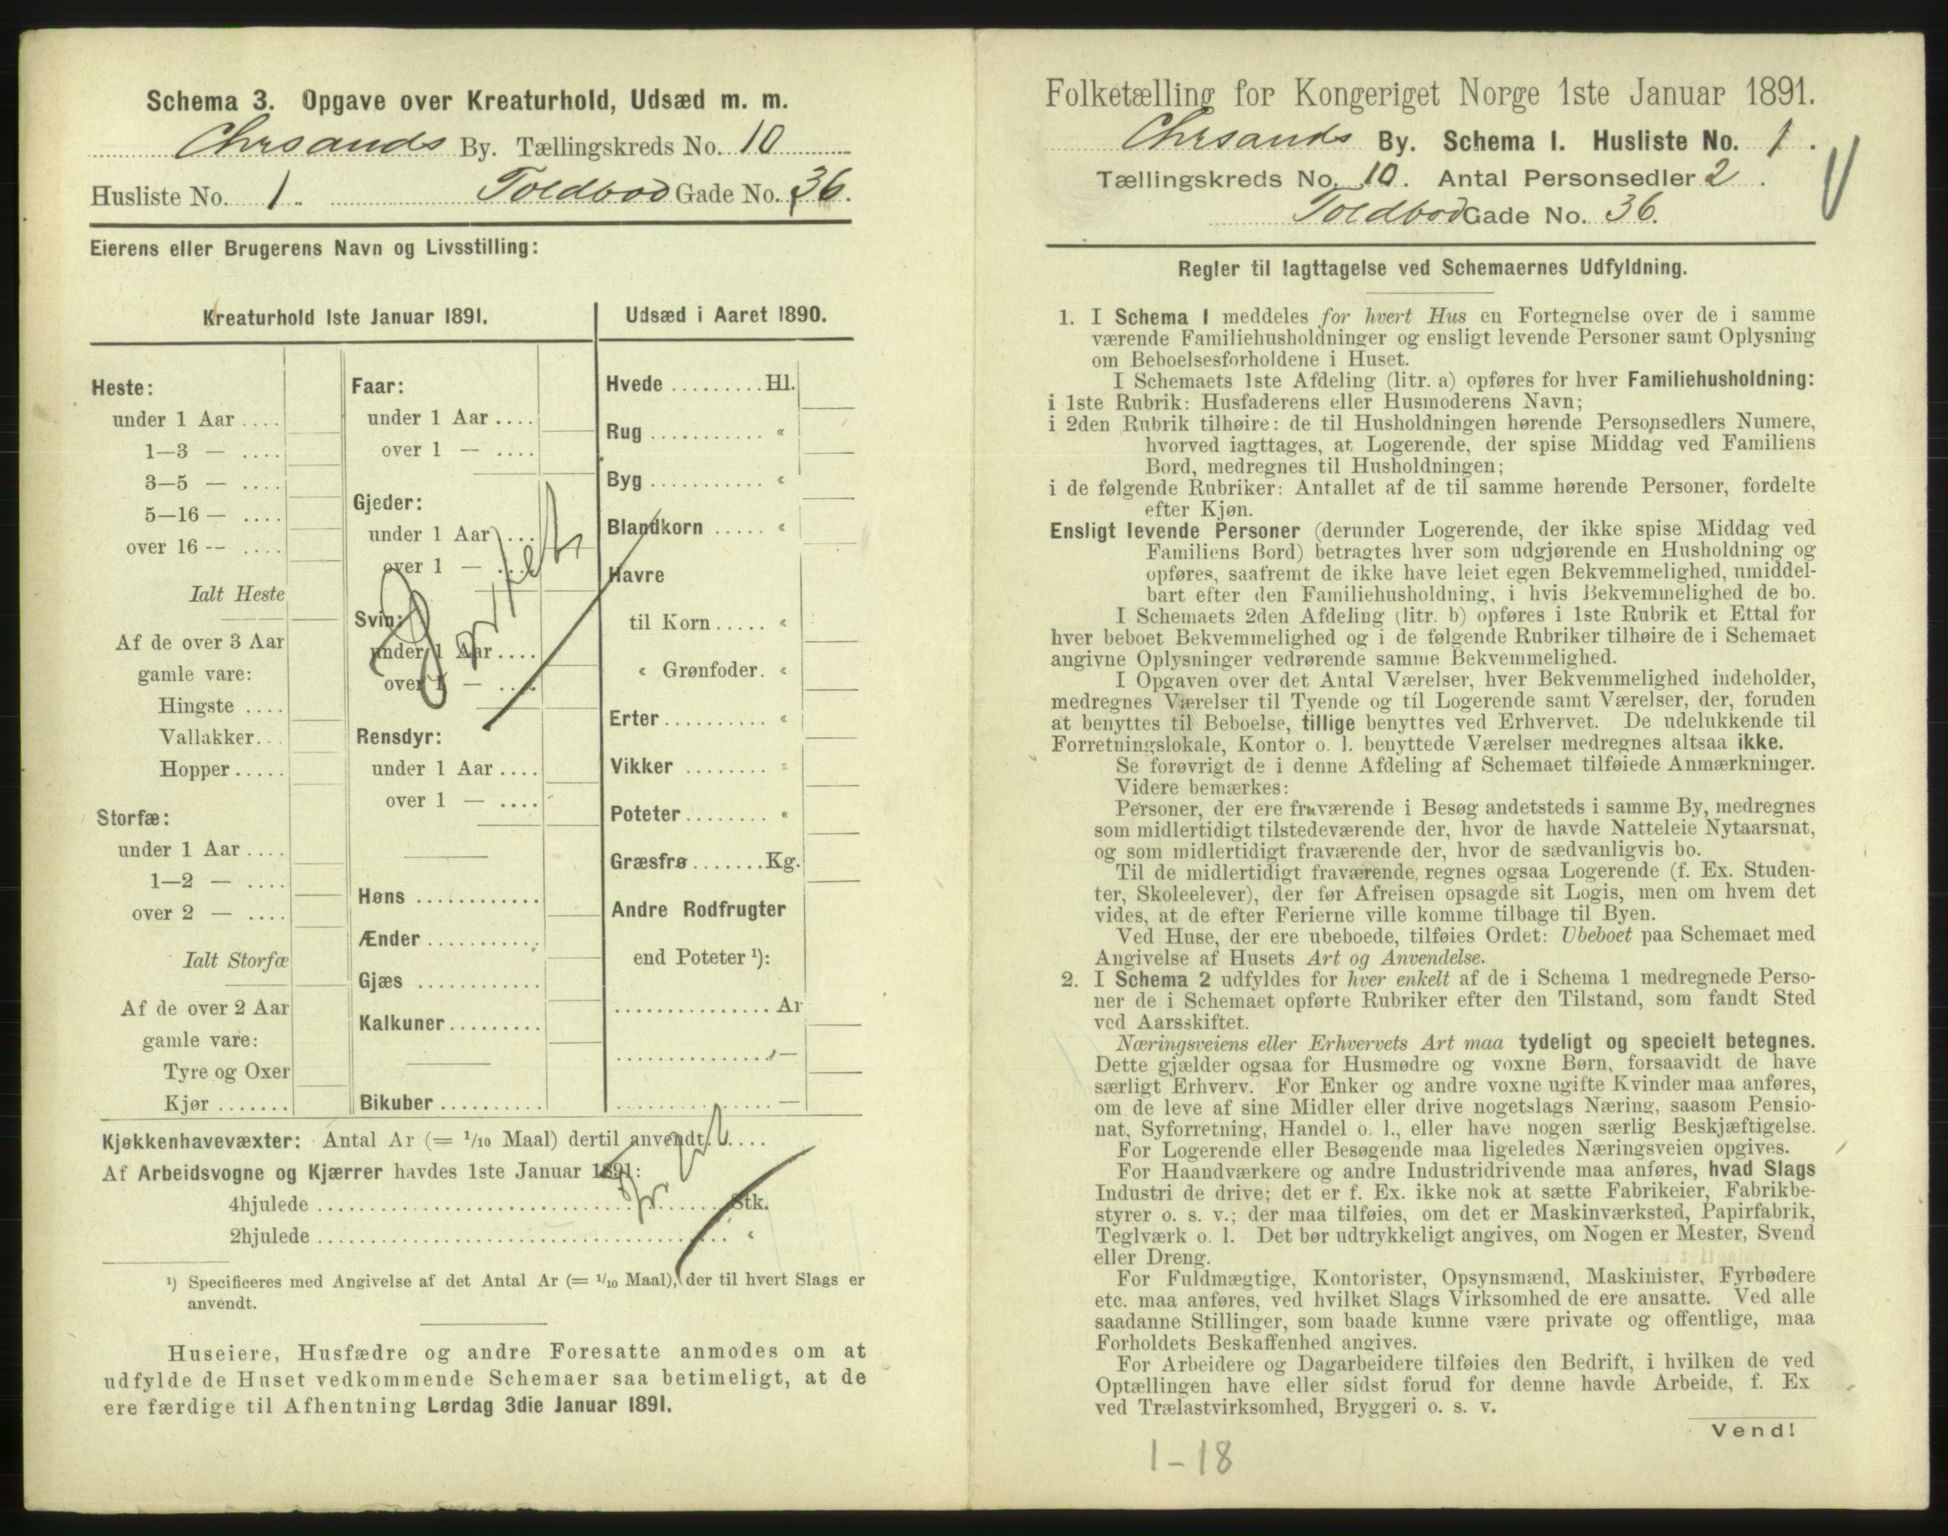 Schema 3. Opgave over Kreaturhold, Udsæd m. m.
Chrsands By. Tællingskreds No. 10
Husliste No. 1. Toldbod Gade No. 36.
Eierens eller Brugerens Navn og Livsstilling:
Kreaturhold 1ste Januar 1891.
Heste:
under 1 Aar ....
1—3 — ....
3—5 — ....
5—16 — ....
over 16 — ....
Ialt Heste
Af de over 3 Aar
gamle vare:
Hingste ....
Vallakker...
Hopper.....
Storfæ:
under 1 Aar ....
1—2 — ....
over 2 — ....
Ialt Storfæ
Af de over 2 Aar
gamle vare:
Tyre og Oxer
Kjør.......
Faar:
under 1 Aar ....
over 1 — ....
Gjeder:
under 1 Aar ....
over 1 — ....
Svin:
under 1 Aar ....
over 1 — ....
Rensdyr:
under 1 Aar ....
over 1 — ....
Høns ............
Ænder...........
Gjæs ............
Kalkuner.........
Bikuber..........
Udsæd i Aaret 1890.
Hvede .........Hl.
Rug ........... «
Byg ........... «
Blandkorn ..... «
Havre
til Korn..... «
« Grønfoder. «
Erter.......... «
Vikker ........ «
Poteter........ «
Græsfrø.......Kg.
Andre Rodfrugter
end Poteter ¹):
............... Ar
............... —
............... —
Kjøkkenhavevæxter: Antal Ar (= 1/10 Maal) dertil anvendt.....
Af Arbeidsvogne og Kjærrer havdes 1ste Januar 1891:
4hjulede ........................................ Stk.
2hjulede ........................................ «
¹) Specificeres med Angivelse af det Antal Ar (= 1/10 Maal), der til hvert Slags er
anvendt.
Huseiere, Husfædre og andre Foresatte anmodes om at
udfylde de Huset vedkommende Schemaer saa betimeligt, at de
ere færdige til Afhentning Lørdag 3die Januar 1891.
Folketælling for Kongeriget Norge 1ste Januar 1891.
Chrsands By. Schema I. Husliste No. 1.
Tællingskreds No. 10. Antal Personsedler 2.
Toldbod Gade No. 36.
Regler til Iagttagelse ved Schemaernes Udfyldning.
1. I Schema 1 meddeles for hvert Hus en Fortegnelse over de i samme
værende Familiehusholdninger og ensligt levende Personer samt Oplysning
om Beboelsesforholdene i Huset.
I Schemaets 1ste Afdeling (litr. a) opføres for hver Familiehusholdning:
i 1ste Rubrik: Husfaderens eller Husmoderens Navn;
i 2den Rubrik tilhøire: de til Husholdningen hørende Personsedlers Numere,
hvorved iagttages, at Logerende, der spise Middag ved Familiens
Bord, medregnes til Husholdningen;
i de følgende Rubriker: Antallet af de til samme hørende Personer, fordelte
efter Kjøn.
Ensligt levende Personer (derunder Logerende, der ikke spise Middag ved
Familiens Bord) betragtes hver som udgjørende en Husholdning og
opføres, saafremt de ikke have leiet egen Bekvemmelighed, umiddel-
bart efter den Familiehusholdning, i hvis Bekvemmelighed de bo.
I Schemaets 2den Afdeling (litr. b) opføres i 1ste Rubrik et Ettal for
hver beboet Bekvemmelighed og i de følgende Rubriker tilhøire de i Schemaet
angivne Oplysninger vedrørende samme Bekvemmelighed.
I Opgaven over det Antal Værelser, hver Bekvemmelighed indeholder,
medregnes Værelser til Tyende og til Logerende samt Værelser, der, foruden
at benyttes til Beboelse, tillige benyttes ved Erhvervet. De udelukkende til
Forretningslokale, Kontor o. l. benyttede Værelser medregnes altsaa ikke.
Se forøvrigt de i denne Afdeling af Schemaet tilføiede Anmærkninger.
Videre bemærkes:
Personer, der ere fraværende i Besøg andetsteds i samme By, medregnes
som midlertidigt tilstedeværende der, hvor de havde Natteleie Nytaarsnat,
og som midlertidigt fraværende der, hvor de sædvanligvis bo.
Til de midlertidigt fraværende regnes ogsaa Logerende (f. Ex. Studen-
ter, Skoleelever), der før Afreisen opsagde sit Logis, men om hvem det
vides, at de efter Ferierne ville komme tilbage til Byen.
Ved Huse, der ere ubeboede, tilføies Ordet: Ubeboet paa Schemaet med
Angivelse af Husets Art og Anvendelse.
2. I Schema 2 udfyldes for hver enkelt af de i Schema 1 medregnede Perso-
ner de i Schemaet opførte Rubriker efter den Tilstand, som fandt Sted
ved Aarsskiftet.
Næringsveiens eller Erhvervets Art maa tydeligt og specielt betegnes.
Dette gjælder ogsaa for Husmødre og voxne Børn, forsaavidt de have
særligt Erhverv. For Enker og andre voxne ugifte Kvinder maa anføres,
om de leve af sine Midler eller drive nogetslags Næring, saasom Pensio-
nat, Syforretning, Handel o. l., eller have nogen særlig Beskjæftigelse.
For Logerende eller Besøgende maa ligeledes Næringsveien opgives.
For Haandværkere og andre Industridrivende maa anføres, hvad Slags
Industri de drive; det er f. Ex. ikke nok at sætte Fabrikeier, Fabrikbe-
styrer o. s. v.; der maa tilføies, om det er Maskinværksted, Papirfabrik,
Teglværk o. l. Det bør udtrykkeligt angives, om Nogen er Mester, Svend
eller Dreng.
For Fuldmægtige, Kontorister, Opsynsmænd, Maskinister, Fyrbødere
etc. maa anføres, ved hvilket Slags Virksomhed de ere ansatte. Ved alle
saadanne Stillinger, som baade kunne være private og offentlige, maa
Forholdets Beskaffenhed angives.
For Arbeidere og Dagarbeidere tilføies den Bedrift, i hvilken de ved
Optællingen have eller sidst forud for denne havde Arbeide, f. Ex
ved Trælastvirksomhed, Bryggeri o. s. v.
Vend!
1-18